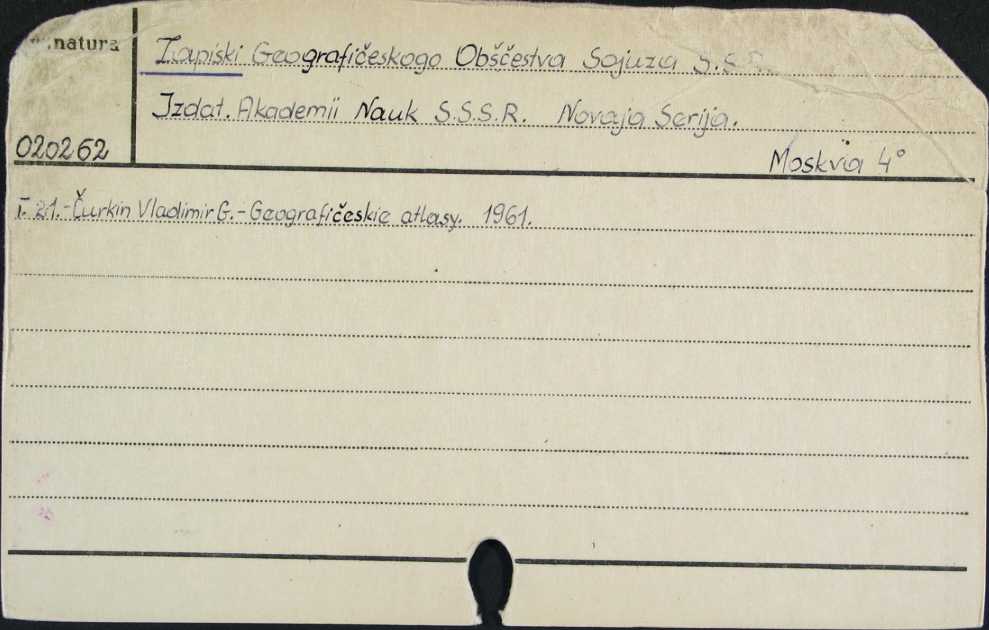 natura
Zapiski Geografičeskogo Obščestva Sojuza S.S.
Izdat. Akademii Nauk S.S.S.R. Novaja Serija.
020262
Moskvia 4°
T. 21.-Čurkin Vladimir G.-Geografičeskie atlasy. 1961.